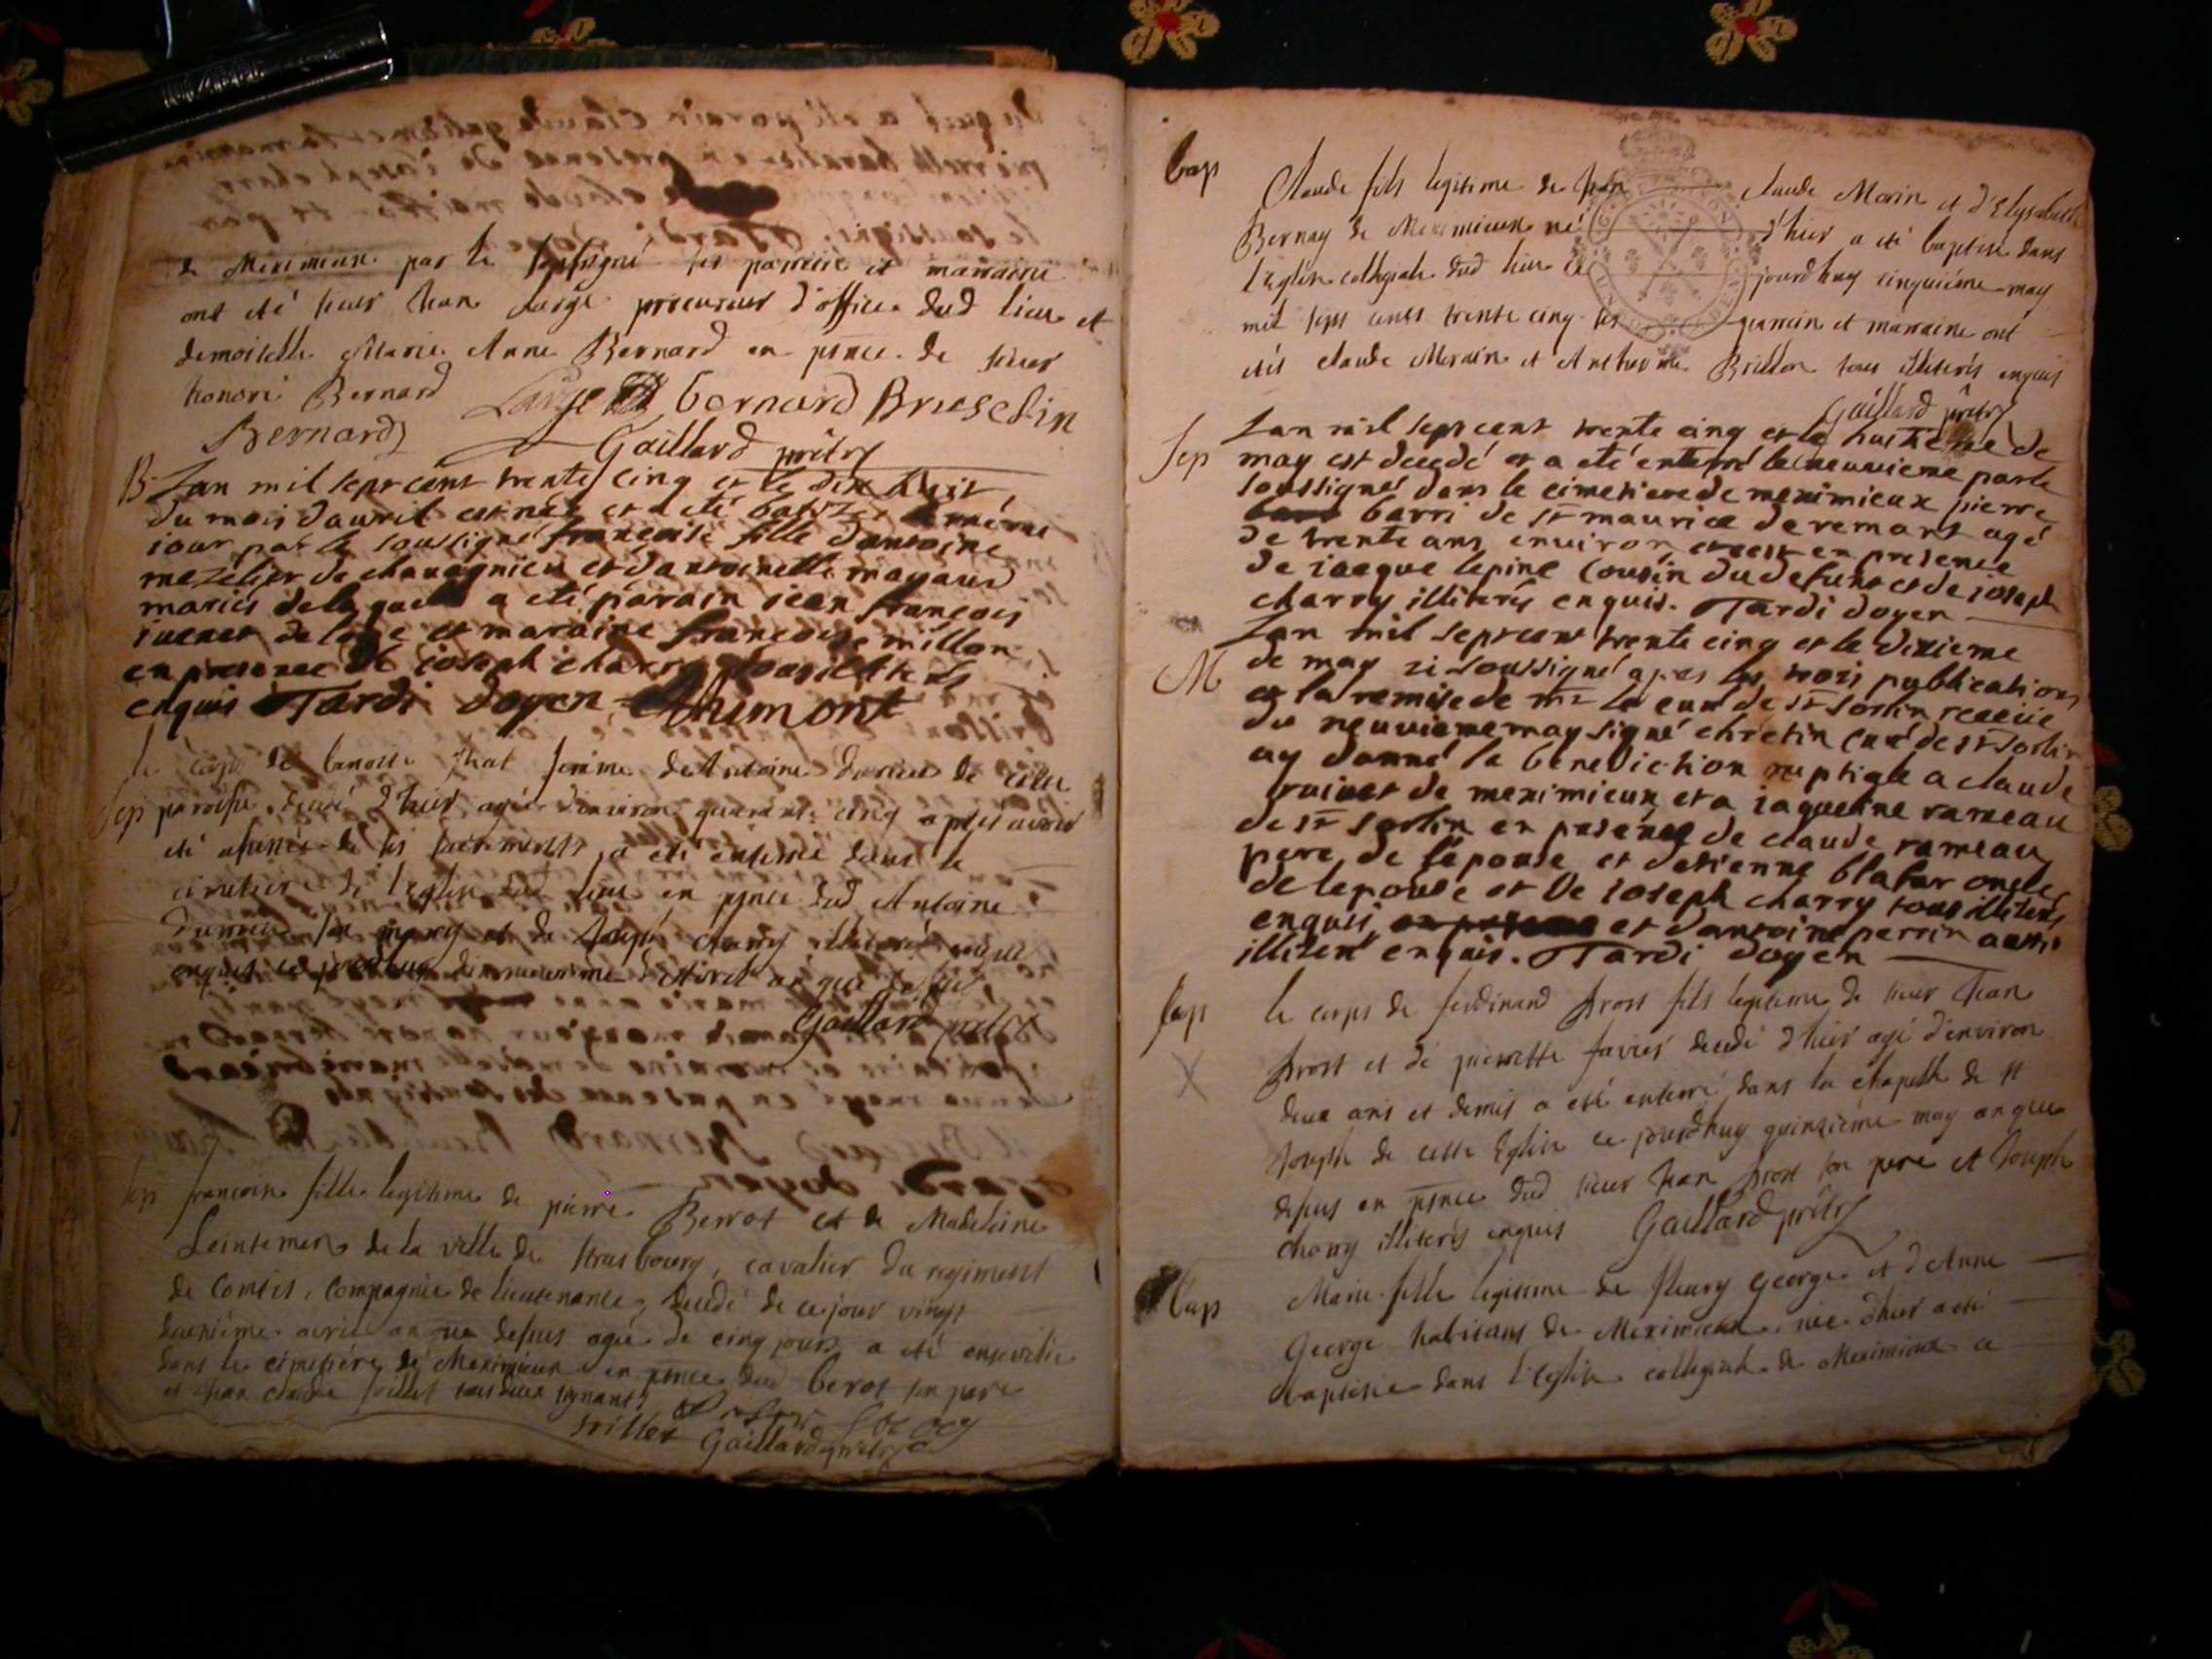 de Meximieux par le soussigné ses parrain et marraine
ont eté sieur Jean Large procureur d'office dud lieu et
demoiselle Marie Anne Bernard en pnce de sieur
honoré Bernard Large bernard Bruiselin
Bernard Gaillard prêtre
B Lan mil sept cent trente cinq et le dix huit
du mois dauril est née et a eté batizée le même
iour par le soussigné françoise fille dantoine
mezelier de chauagnieu et dantoinette mayaud
mariés de laquelle a eté parain jean françois
iuenet de loye et maraine françoise millon
en presence de ioseph charry tous illiterés
enquis Tardi doyen Chimont
le corps de benoite femme de Antoine de cette
Sep paroisse decedé d'hier agée d'environ quarante cinq apres avoir
eté assistée de ses sacrements a eté enterrée dans le
cimetiere de l'eglise dud lieu en pnce dud Antoine
son mary et de Joseph charry illiterés
enquis ce d'Avril an que dessus
Gaillard prêtre
Sep francoise fille legitime de pierre Berrot et de Madeleine
de la ville de strasbourg, cavalier du regiment
de Contis, compagnie de lieutenance, decedé de ce jour vingt
deuxiéme avril an que dessus agée de cinq jours a eté ensevelie
dans le cimetiére de Meximieux en pnce dud berot son pere
et Jean claude trillet tous deux signants
trillet Gaillard prêtre
bap Claude fils legitime de Jean claude Morin et d'Elysabeth
Bernay de Meximieux né d'hier a eté baptisé dans
l'Eglise collegiale dud lieu ce jourdhuy cinquiéme may
mil sept cents trente cinq ses parrein et marraine ont
etés claude Morain et Anthoine Brillon tous illiterés enquis
Gaillard prêtre
Sep Lan mil sept cent trente cinq et le huitieme de
may est decedé et a eté enterré le neuuieme par le
soussigné dans le cimetiere de meximieux pierre
barri de st maurice de remans agé
de trente ans enuiron et cest en presence
de iacque lepine cousin du defunt et de ioseph
charry illiterés enquis. Tardi doyen
M Lan mil sept cent trente cinq et le dixieme
de may ie soussigné apres les trois publications
et la remise de mr le curé de st sorlin receüe
du neuuieme may signé chretin curé de st sorlin
ay donné la benediction nuptiale a claude
ruivet de meximieux et a iaqueline rameau
de st sorlin en presence de claude rameau
pere de lepouse et detienne blatar oncle
de lepouse et de ioseph charry tous illiterés
enquis et dantoine perrin aussi
illiteré enquis. Tardi doyen
Sep le corps de ferdinand Prost fils legitime de sieur Jean
Prost et de pierrette favier decedé d'hier agé d'environ
deux ans et demis a eté enterré dans la chapelle de st
Joseph de cette Eglise ce jourdhuy quinziéme may an que
dessus en pnce dud sieur Jean Prost son pere et Joseph
charry illiterés enquis Gaillard prêtre
bap Marie fille legitime de fleury George et d'Anne
George habitans de Meximieux née d'hier a eté
baptisée dans l'Eglise collegiale de Meximieux ce